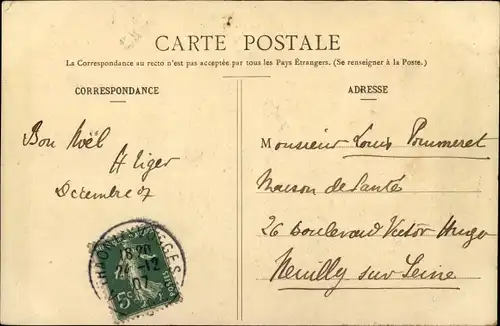 CARTE POSTALE
La Correspondance au recto n'est pas acceptée par tous les Pays Étrangers. (Se renseigner à la Poste.)
CORRESPONDANCE
ADRESSE
Bon Noël
Décembre 07
Monsieur Louis Pommeret
Maison de Santé
26 boulevard Victor Hugo
Neuilly sur Seine
THAON VOSGES
18 20
24 -12
07
5c